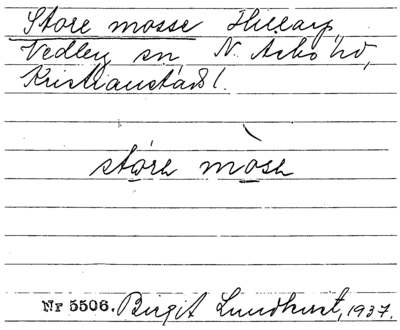 Store mosse Hillarp
Vedby sn N. Åsbo hd,
Kristianstads l.
stóre mòse
Nr 5506. Birgit Lundkvist, 1937.